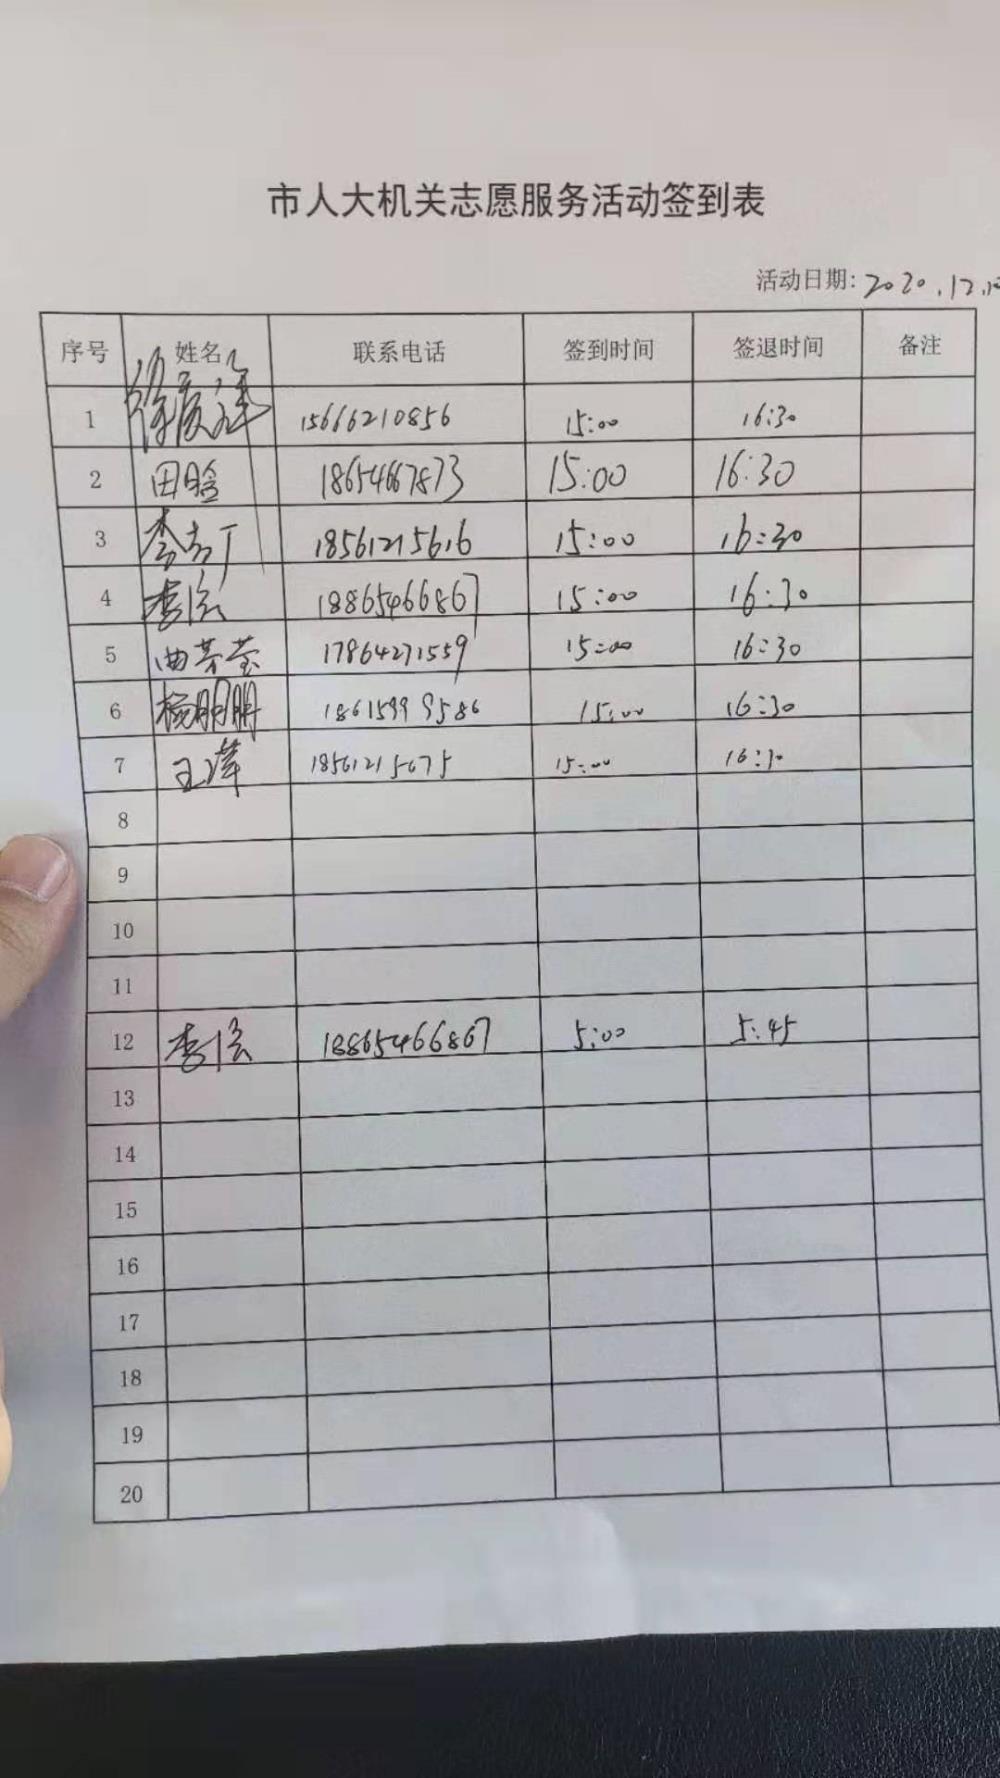 市人大机关志愿服务活动签到表
活动日期: 2020.12.
序号 姓名 联系电话 签到时间 签退时间 备注
1 15666210856 15:00 16:30
2 田晗 18654667873 15:00 16:30
3 李 18561215616 15:00 16:30
4 李 18865466867 15:00 16:30
5 曲芳莹 17864271559 15:00 16:30
6 杨朋朋 18615999586 15:00 16:30
7 王萍 18561215675 15:00 16:30
8
9
10
11
12 李 18865466867 5:00 5:45
13
14
15
16
17
18
19
20